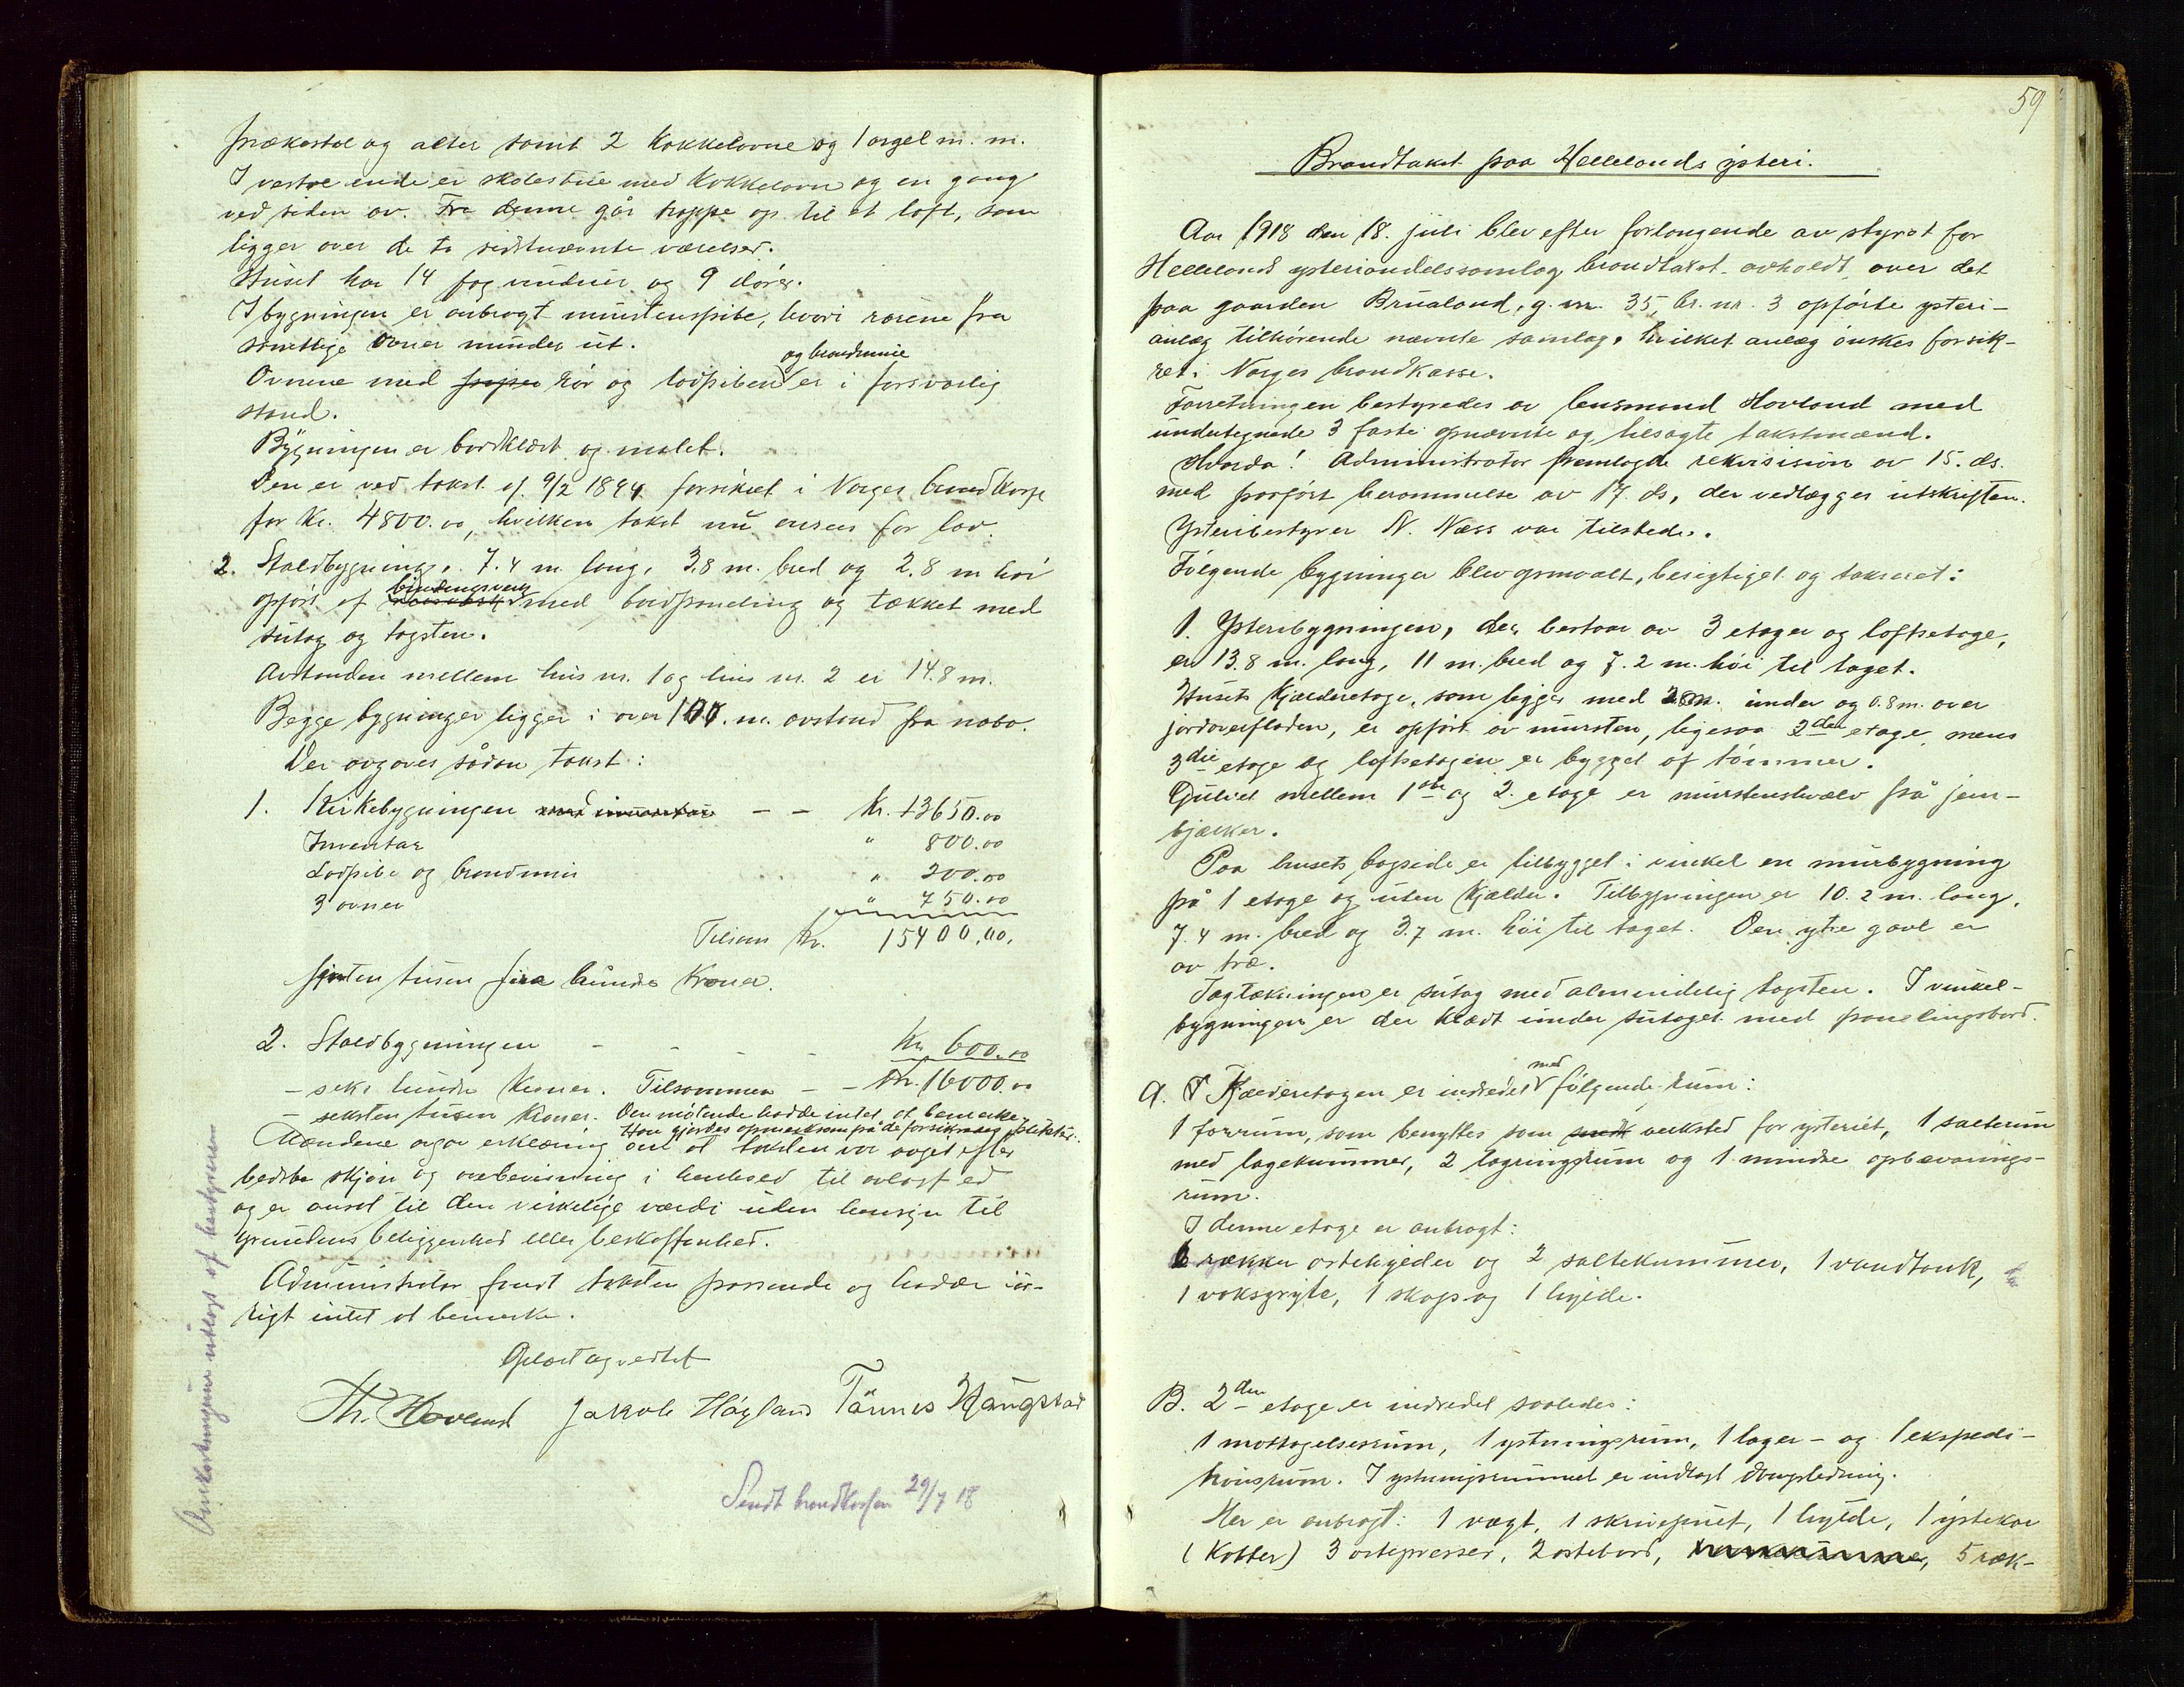 prækestol og alter samt 2 kakkelovne og 1 orgel m. m.
I vestre ende er skolestue med kakkelovn og en gang
ved siden av. Fra denne går trappe op til et loft, som
ligger over de to sidstnævnte værelser.
Huset har 14 fag vinduer og 9 dører.
I bygningen er anbragt murstenspibe, hvori rørene fra
samtlige ovner munder ut.
og brandmur
Ovnene med piper rør og lodpiben er i forsvarlig
stand.
Bygningen er bordklædt og malet.
Den er ved takst af 9/2 1894 forsikret i Norges brandkasse
for kr. 4800.00, hvilken takst nu ansees for lav.
2. Staldbygning. 7.4 m. lang, 3.8 m. bred og 2.8 m høi
bindingsverk
opført af med bordpaneling og tækket med
sutag og tagsten.
Avstanden mellem hus nr. 1 og hus nr. 2 er 14.8 m.
Begge bygninger ligger i over 100 m. avstand fra nabo.
Der avgaves sådan takst:
1. Kirkebygningen med inventar - - Kr. 13650.00
Inventar " 800.00
Lodpibe og brandmur " 200.00
3 ovner " 750.00
Tilsam Kr. 15400.00.
femten tusen fire hundre kroner.
2. Staldbygningen - - - - Kr. 600.00
- seks hundre kroner. Tilsammen - - Kr. 16000.00
- seksten tusen kroner. Den møtende hadde intet at bemerke.
Han gjordes opmerksom på de forsikredes plikter.
Mændene avgav erklæring om at taksten var avgit efter
bedste skjøn og overbevisning i henhold til avlagt ed
og er ansat til den virkelige værdi uden hensyn til
grundens beliggenhed eller beskaffenhed.
Administrator fandt taksten passende og hadde iø-
vrigt intet at bemerke.
Oplæst og vedtat
Th. Hovland Jakob Høgland Tønnes Haugstad
Sendt brandkassen 29/7 18
Omkostningene utlagt af bestyreren
59
Brandtakst paa Hellelands ysteri.
Aar 1918 den 18. juli blev efter forlangende av styret for
Hellelands ysteriandelssamlag brandtakst avholdt over det
paa gaarden Brualand, g. nr. 35, br. nr. 3 opførte ysteri-
anlæg tilhørende nævnte samlag, hvilket anlæg ønskes forsik-
ret i Norges brandkasse.
Forretningen bestyredes av lensmand Hovland med
undertegnede 3 faste opnævnte og tilsagte takstmænd.
Hvorda! Administrator fremlagde rekvisision av 15. ds.
med påført berammelse av 17. ds, der vedlægges utskriften.
Ysteribestyrer N. Næss var tilstede.
Følgende bygninger blev opmaalt, besigtiget og takseret:
1. Ysteribygningen, der bestaar av 3 etager og loftsetage,
er 13.8 m. lang, 11 m. bred og 7.2 m. høi til taget.
Husets kjælderetage, som ligger med m. under og 0.8 m. over
jordoverfladen, er opført av mursten, ligesaa 2den etage, mens
3die etage og loftsetagen er bygget af tømmer.
Gulvet mellem 1ste og 2. etage er murstenshvælv på jern-
bjælker.
Paa husets bagside er tilbygget i vinkel en murbygning
på 1 etage og uten kjælder. Tilbygningen er 10.2 m. lang,
7.4 m. bred og 3.7 m. høi til taget. Den ytre gavl er
av træ.
Tagtækningen er sutag med almindelig tagsten. I vinkel-
bygningen er der klædt under sutaget med panelingsbord.
med
A. Kjælderetagen er indredet følgende rum:
1 forrum, som benyttes som verksted for ysteriet, 1 salterum
med lagekummer, 2 lagringsrum og 1 mindre opbevarings-
rum.
I denne etage er anbragt:
rækker ostehylder og 2 saltekummer, 1 vandtank,
1 voksgryte, 1 skap og 1 hylde.
B. 2den etage er indredet saaledes:
1 mottagelsesrum, 1 ystningsrum, 1 lager- og 1 ekspedi-
tionsrum. I ystningsrummet er indlagt dampledning.
Her er anbragt: 1 vægt, 1 skrivepult, 1 hylde, 1 ystekar
(kobber) 3 ostepresser, 2 ostebord, 5 ræk-